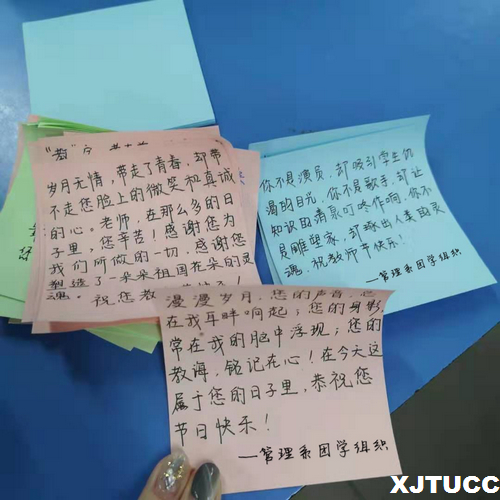 岁月无情，带走了青春，却带
不走您脸上的微笑和真诚
的心。老师，在那么多的日
子里，您辛苦！感谢您为
我们所做的一切，感谢您
塑造了一朵朵祖国花朵的灵
魂。祝您教
你不是演员，却吸引学生饥
渴的目光，你不是歌手，却让
知识的清泉叮咚作响，你不
是雕塑家，却琢出人类的灵
魂，祝教师节快乐！
—管理系团学组织
漫漫岁月，您的声音，总
在我耳畔响起；您的身影，
常在我的脑中浮现；您的
教诲，铭记在心！在今天这
属于您的日子里，恭祝您
节日快乐！
—管理系团学组织
XJTUCC